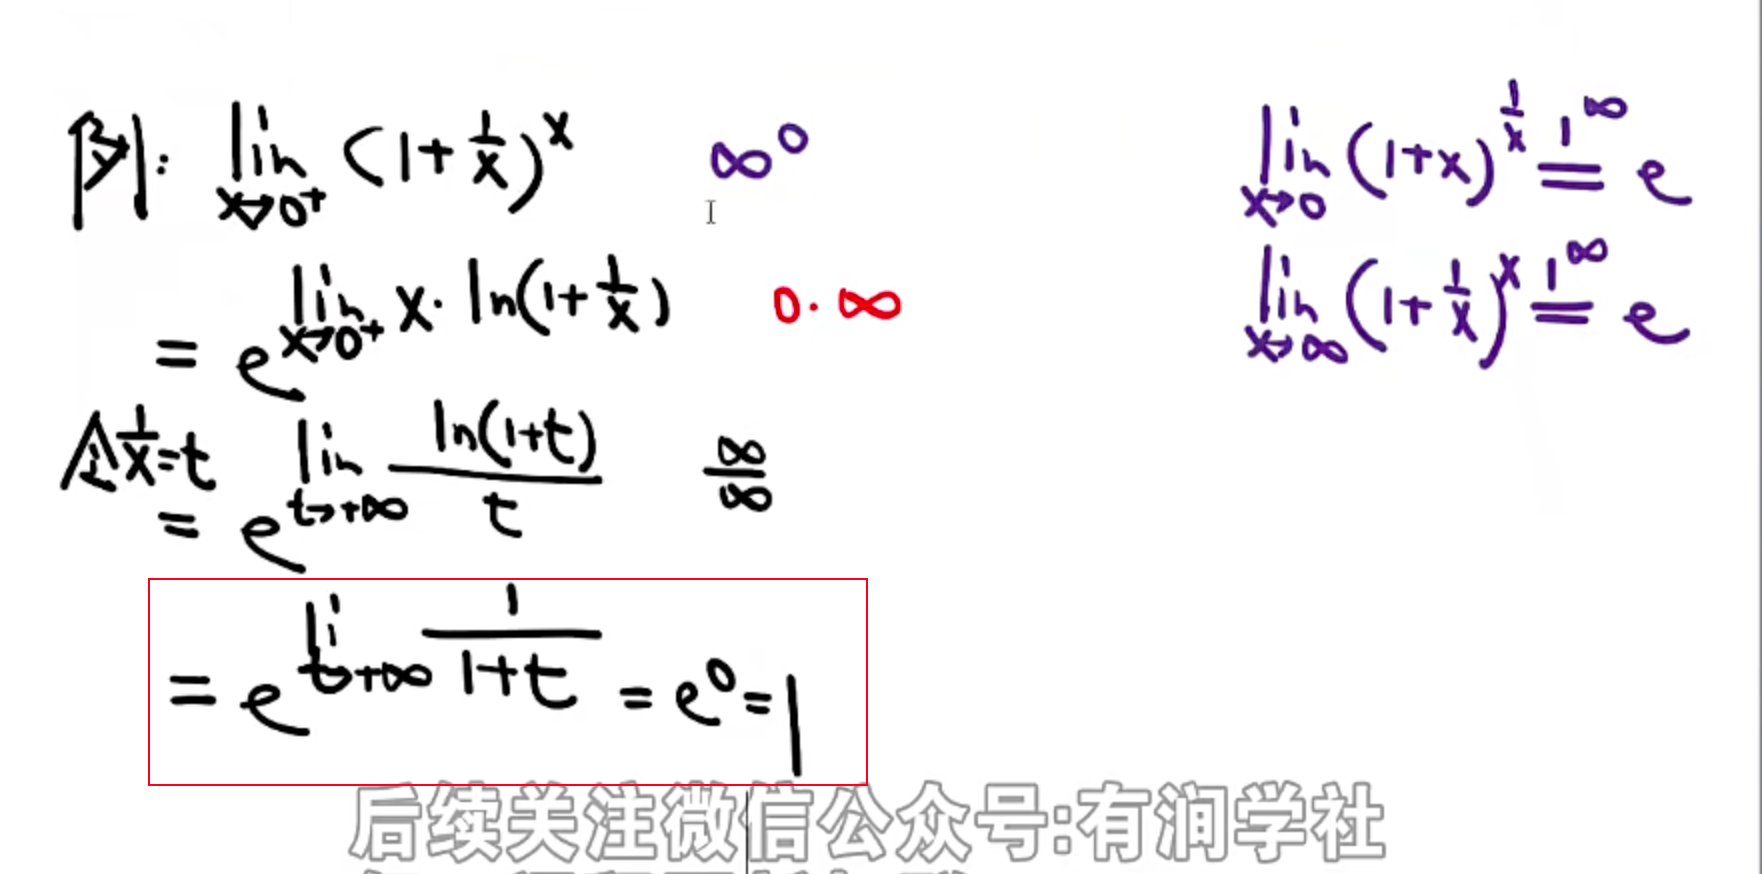 例: lim x→0⁺ (1+1/x)^x   ∞^0
= e^{lim x→0⁺ x·ln(1+1/x)}   0·∞
令1/x=t
= e^{lim t→+∞ ln(1+t)/t}   ∞/∞
= e^{li t→+∞ 1/(1+t)} = e^0 = 1
lim x→0 (1+x)^{1/x} 1^∞ = e
lim x→∞ (1+1/x)^x 1^∞ = e
后续关注微信公众号:有润学社